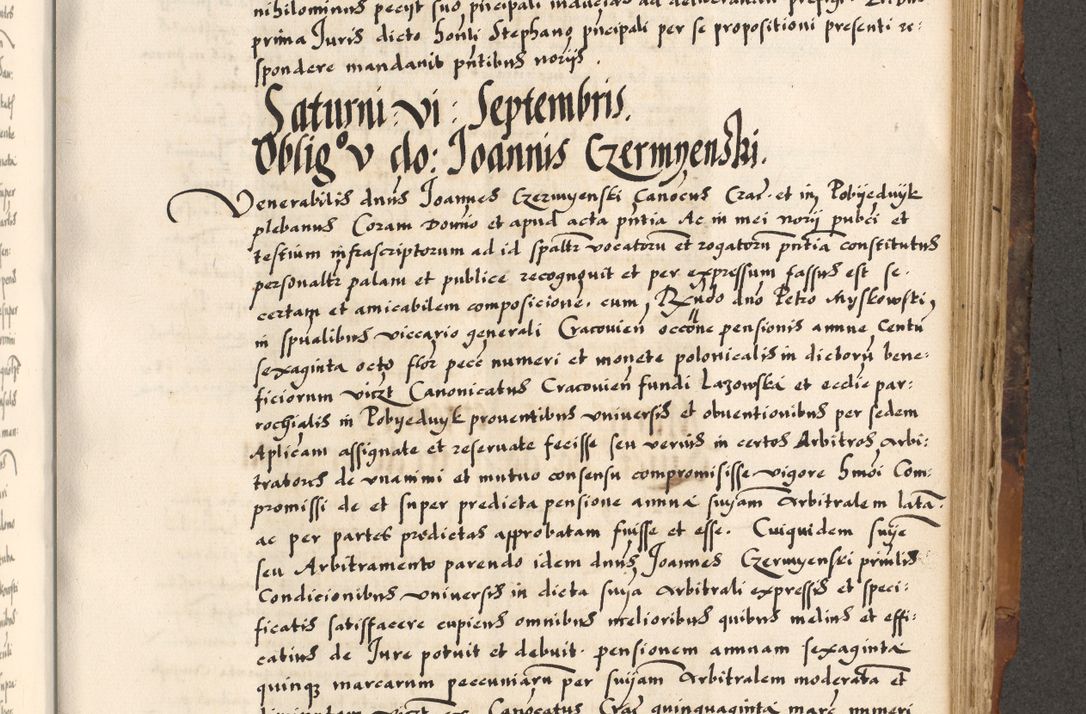 prima Juris dicto honli Stephano pncipali per se propositioni presenti re:
spondere mandavit pntibus norijs.
Saturni vi: Septembris.
Obligº v do: Joannis Czermyenski.
Venerabilis dnus Joannes Czermyenski Canocus Crac. et in Pobyedvyk
plebanus Coram Domino et apud acta pntia Ac in mei norij pubci et
testium infrascriptorum ad id spaltr vocatoru et rogatoru pntia constitutus
personaltr palam et publice recognovit et per expressum fassus est se.
certam et amicabilem composicione. cum Rndo dno Petro Myskowski
in spualibus viccario generali Cracovien occone pensionis annue Centu
sexaginta octo flor pecc numeri et monete polonicalis in dictoru bene:
ficiorum viczt Canonicatus Cracovien fundi Lazowski et ecclie par:
rochialis in Pobyedvyk proventibus universis et obventionibus per sedem
Aplicam assignate et reservate fecisse seu verius in certos Arbitros Arbi:
tratores de unanimi et mutuo consensu compromisisse vigore hmoi Com:
promissi de et super predicta pensione annua suijam Arbitralem lata.
ac per partes predictas approbatam fuisse et esse. Cuiquidem suije
seu Arbitramento parendo idem dnus Joannes Czermyenski
Condicionibus universis in dicta suija Arbitrali expressis et speci:
ficatis satisfacere cupiens omnibus melioribus quibus melius et effi:
catius de Jure potuit et debuit. pensionem annuam sexaginta
quinq marcarum peccuniaru per suijam Arbitralem moderata et
Canocatus Crac quinquaginta marc numeri